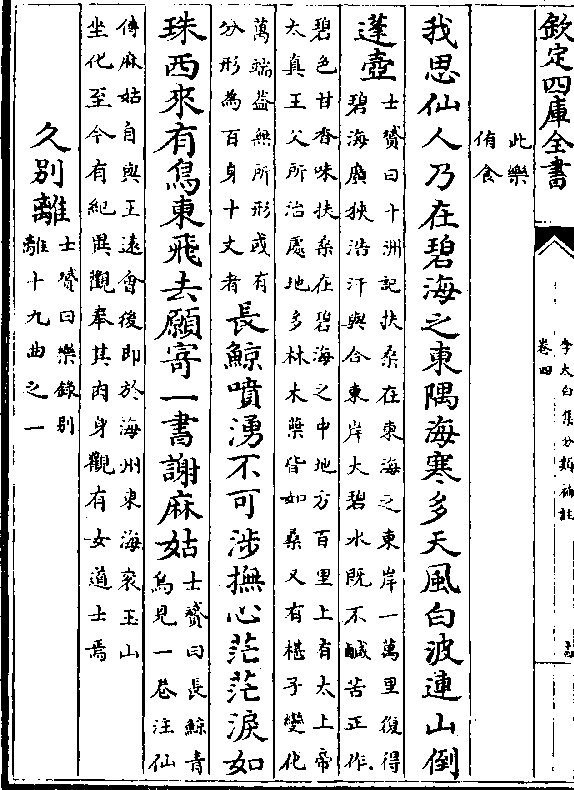 欽定四庫全書
李太白集分類補註
卷四
此樂
侑食
我思仙人乃在碧海之東隅海寒多天風白波連山倒
蓬壺
士贇曰十洲記扶桑在東海之東岸一萬里復得
碧海廣狹浩汗與合東岸大碧水既不鹹苦正作
碧色甘香味扶桑在碧海之中地方百里上有太上帝
太真王父所治處地多林木葉皆如桑又有椹子變化
萬端葢無所形或有
分形為百身十丈者
長鯨噴湧不可涉撫心茫茫淚如
珠西來有鳥東飛去願寄一書謝麻姑
士贇曰長鯨青
鳥見一卷注仙
傳麻姑自與王遠會後即於海州東海衮玉山
坐化至今有紀異觀奉其肉身觀有女道士焉
久别離
士贇曰樂錄别
離十九曲之一